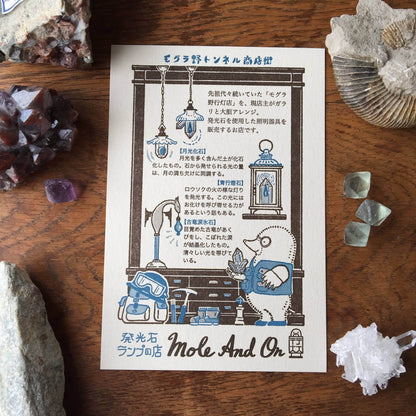 モグラ野トンネル商店街
先祖代々続いていた『モグラ
野行灯店』を、現店主がガラ
リと大胆アレンジ。
発光石を使用した照明器具を
販売するお店です。
【月光化石】
月光を多く含んだ土が化石
化したもの。石から発せられる光の量
は、月の満ち欠けに同調する。
【青行燈石】
ロウソクの火の様な灯り
を発光する。この光には
お化けを呼び寄せる力が
あるという話もある。
【古竜涙氷石】
目覚めた古竜があく
びをし、こぼれた涙
が結晶化したもの。
清々しい光を帯びて
いる。
発光石
ランプの店
Mole And On